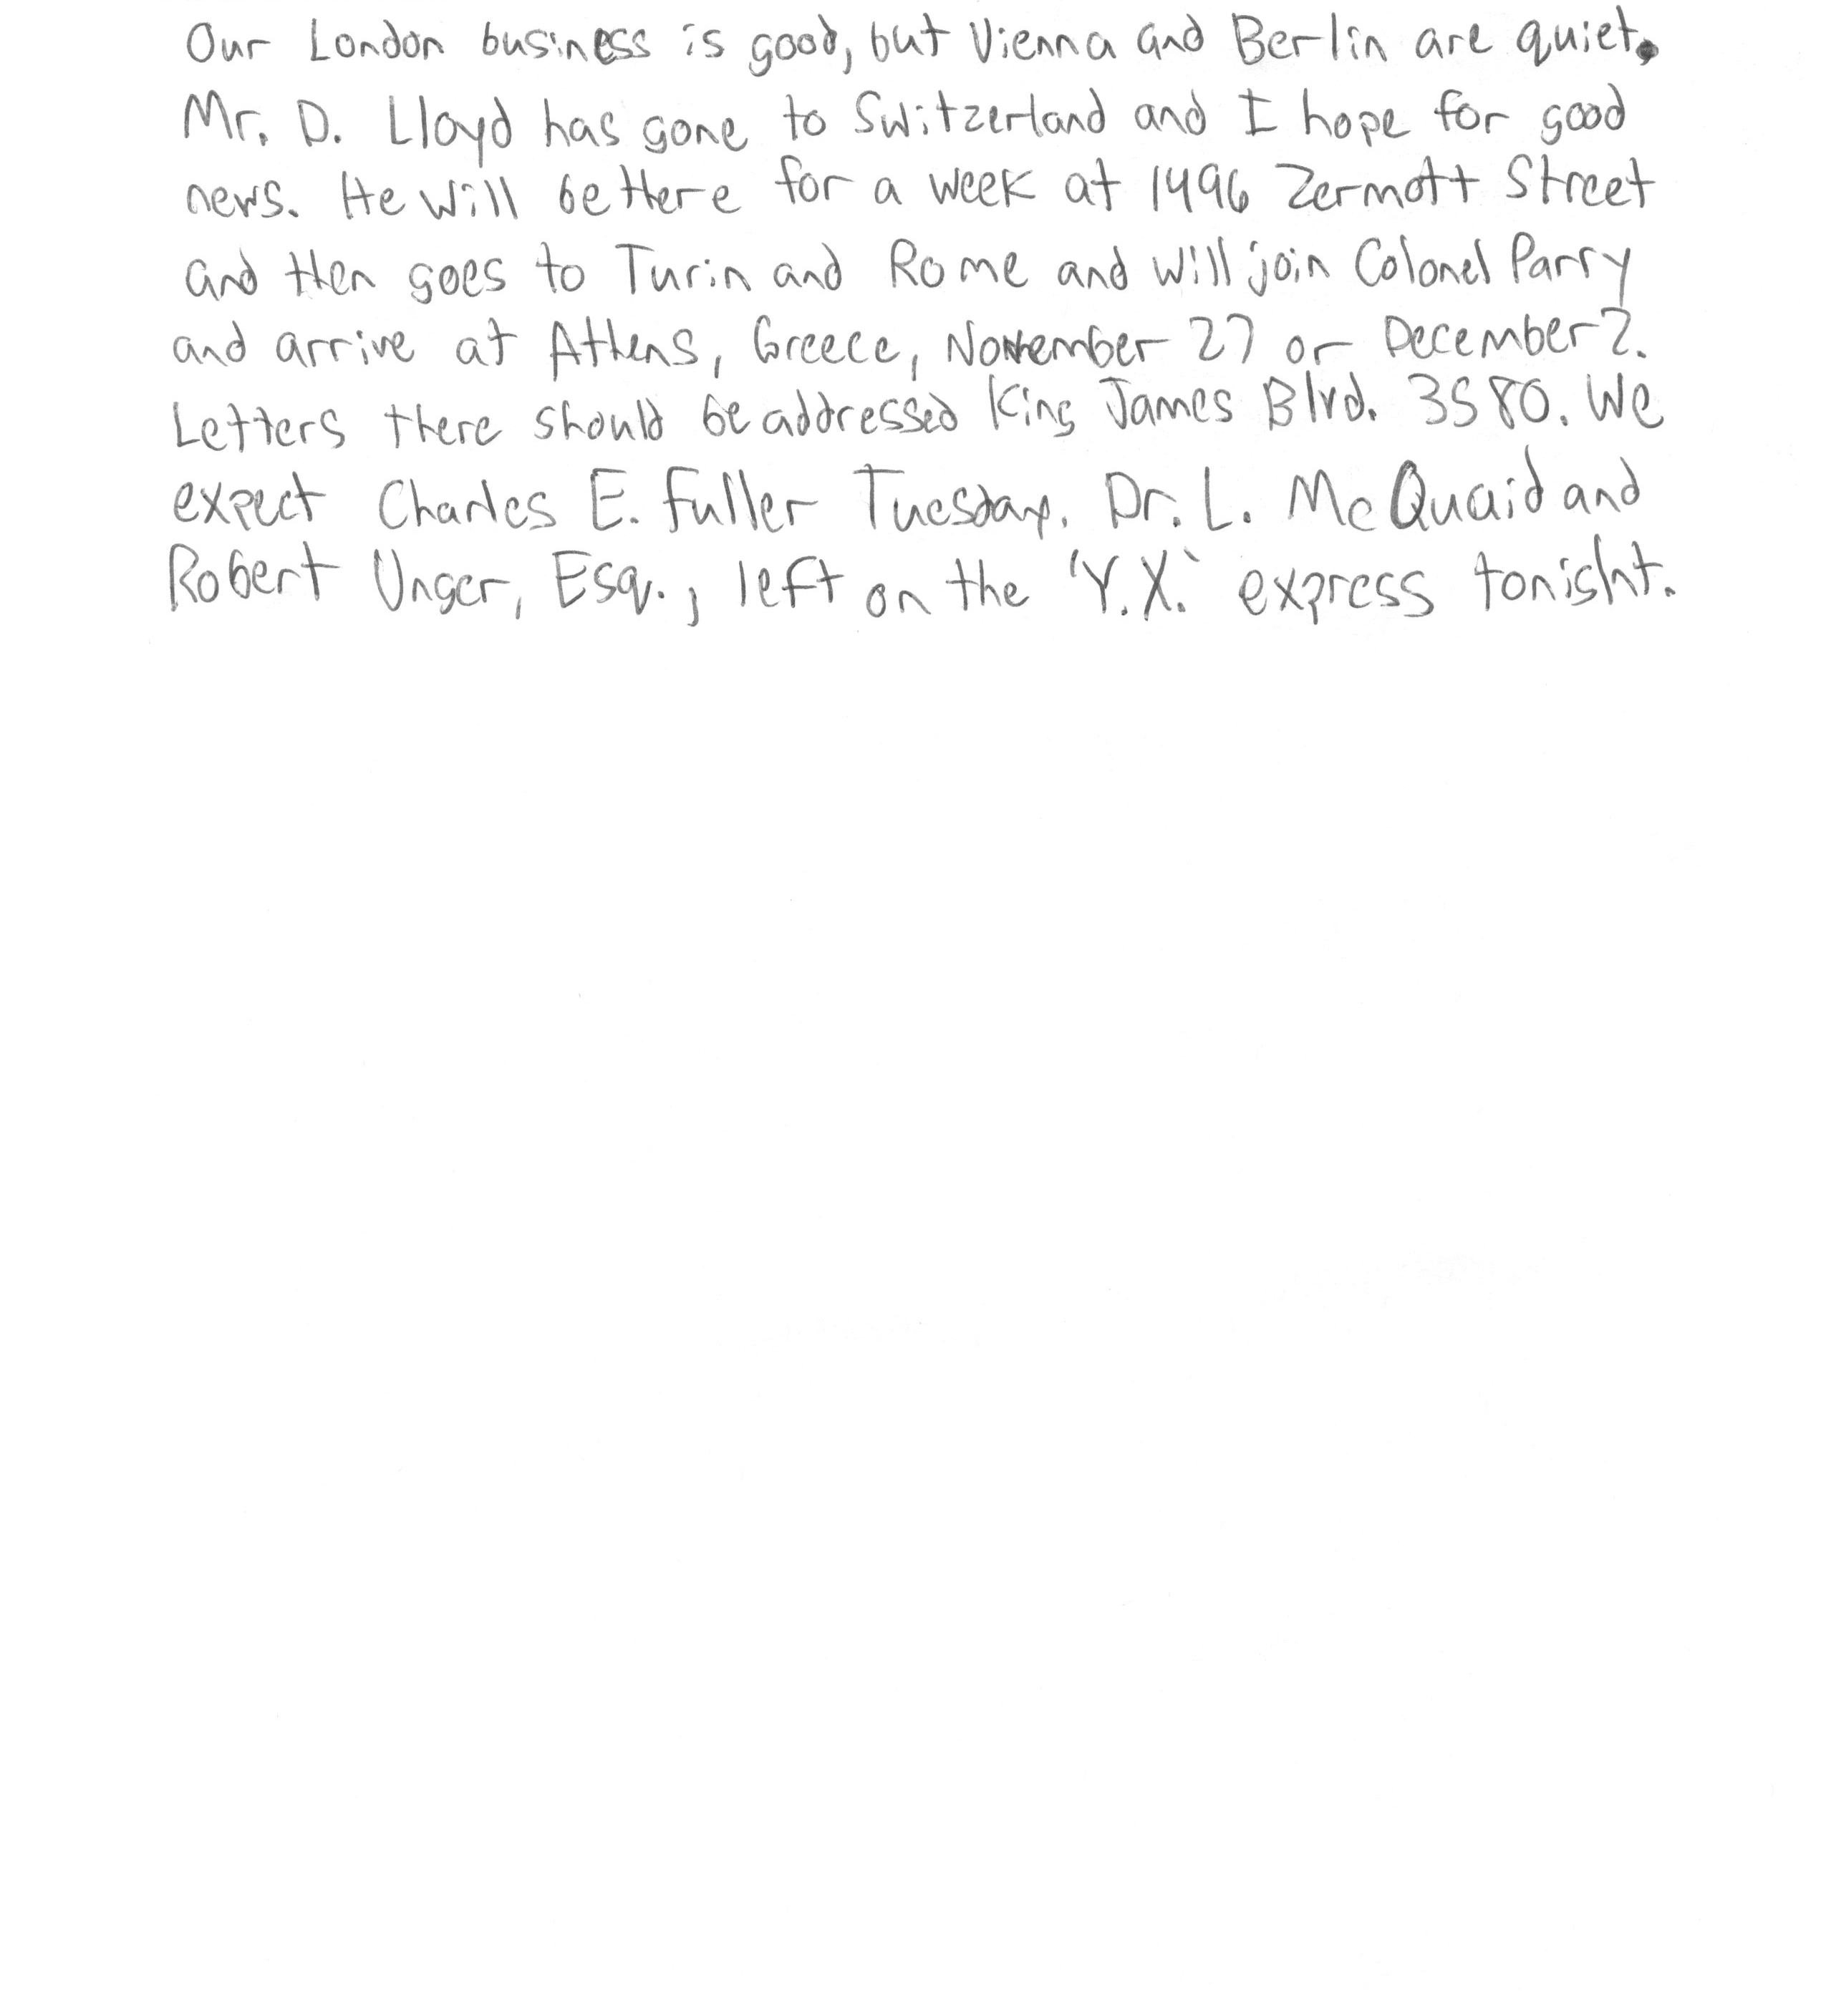 Our London business is good, but Vienna and Berlin are quiet.
Mr. D. Lloyd has gone to Switzerland and I hope for good
news. He will be there for a week at 1496 Zermott Street
and then goes to Turin and Rome and will join Colonel Parry
and arrive at Athens, Greece, November 27 or December 2.
Letters there should be addressed King James Blvd. 3580. We
expect Charles E. Fuller Tuesday. Dr. L. McQuaid and
Robert Unger, Esq., left on the 'Y.X.' express tonight.